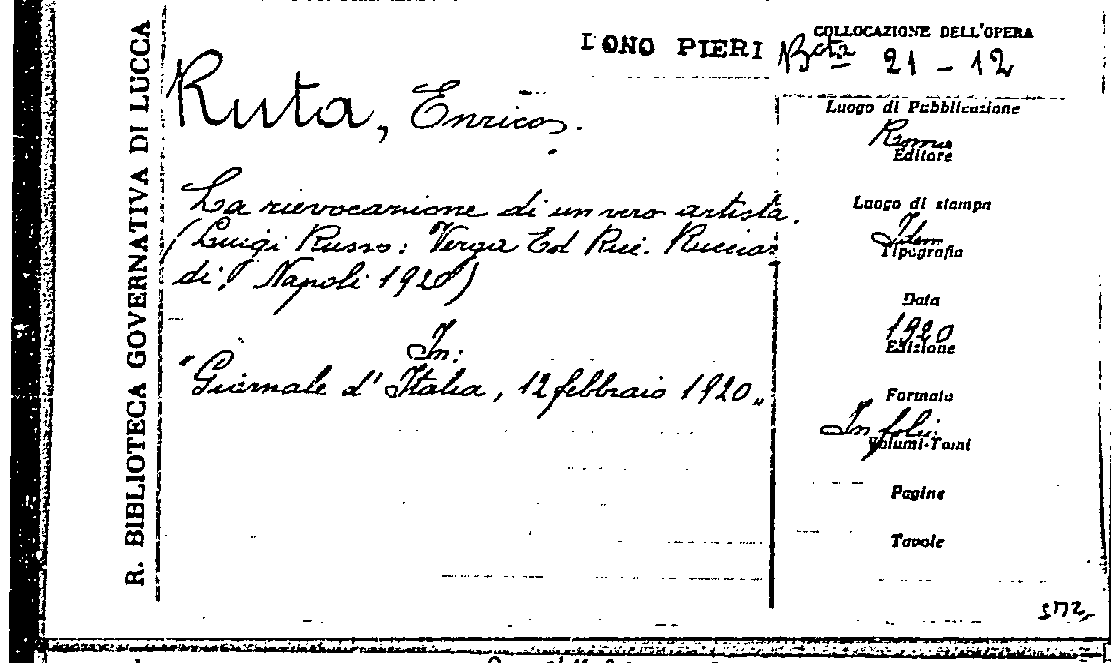 R. BIBLIOTECA GOVERNATIVA DI LUCCA
DONO PIERI
COLLOCAZIONE DELL'OPERA
Bcta 21 - 12
Ruta, Enrico.
La rievocazione di un vero artista.
(Luigi Russo: Verga Ed Ric. Ricciar
di Napoli 1920)
In:
"Giornale d'Italia, 12 febbraio 1920"
Luogo di Pubblicazione
Roma
Editore
Luogo di stampa
Idem
Tipografia
Data
1920
Edizione
Formato
In folio
Volumi-Tomi
Pagine
Tavole